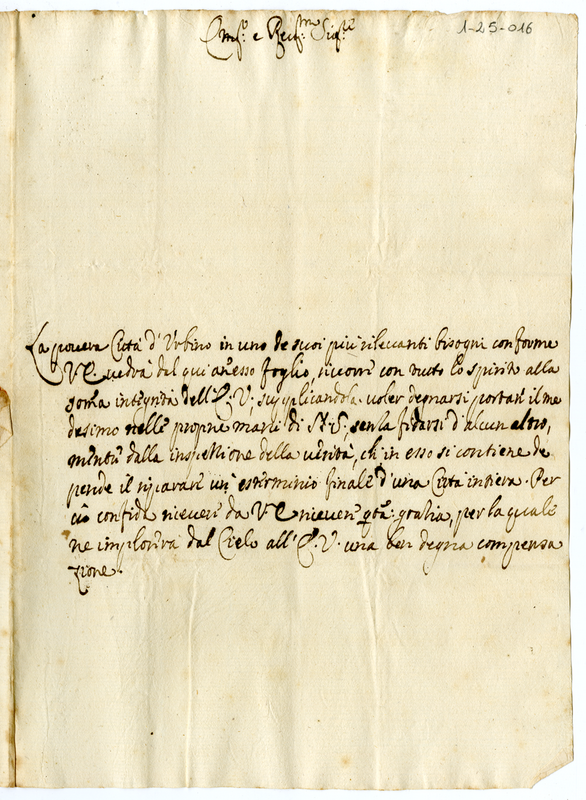 Em.º e Reu.mo Sig.re
1-25-016
La pouera Città d'Vrbino in uno de suoi più rileuanti bisogni conforme
V E uedrà dal qui anesso foglio, ricorre con tutto lo spirito alla
som̃a integrità dell'E. V., supplicandola uoler degnarsi portare il me
desimo nelle proprie mani di N. S., senza fidarsi d'alcun altro,
mentre dalla inspettione della uerità, ch'in esso si contiene de
pende il riparare un' esterminio finale d'una Città intiera. Per
ciò confida riceuere da V E riceuere gratia, per la quale
ne implorerà dal Cielo all'E. V. una ben degna compensa
zione.